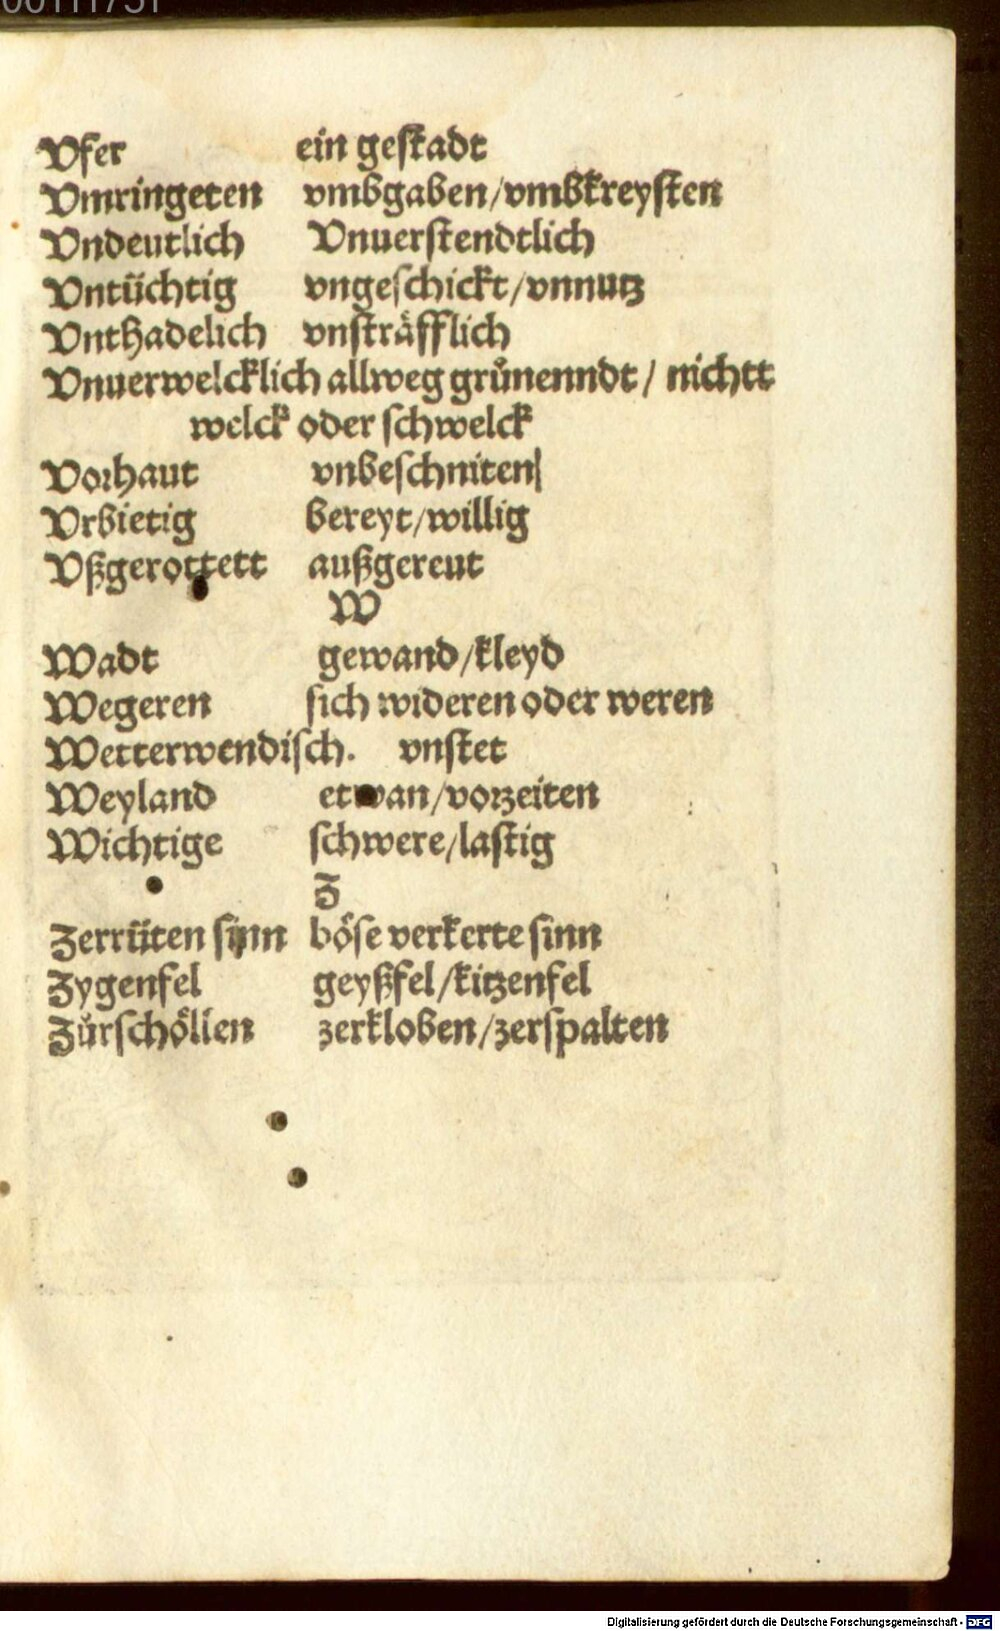 00111731
Vfer ein gestadt
Vmringeten vmbgaben/vmbkreysten
Vndeutlich Vnuerstendtlich
Vntüchtig vngeschickt/vnnutz
Vnthadelich vnsträfflich
Vnuerwelcklich allweg grůnenndt / nichtt
welck oder schwelck
Vorhaut vnbeschniten
Vrbietig bereyt/willig
Vßgerottett außgereut
W
Wadt gewand/kleyd
Wegeren sich wideren oder weren
Wetterwendisch. vnstet
Weyland etwan/vorzeiten
Wichtige schwere/lastig
Z
Zerrüten synn böse verkerte sinn
Zygenfel geyßfel/kitzenfel
Zůrschöllen zerkloben/zerspalten
Digitalisierung gefördert durch die Deutsche Forschungsgemeinschaft - DFG